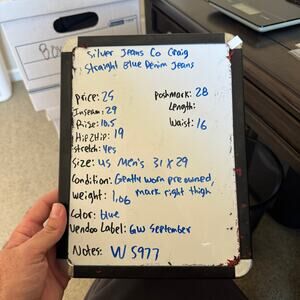 Silver Jeans Co Craig
Straight Blue Denim Jeans
Price: 25
Poshmark: 28
Inseam: 29
Length:
Rise: 10.5
Waist: 16
Hip2Hip: 19
Stretch: Yes
Size: US Men's 31 x 29
Condition: Gently worn preowned,
mark right thigh
Weight: 1.06
Color: blue
Vendoo Label: GW September
Notes: W5977